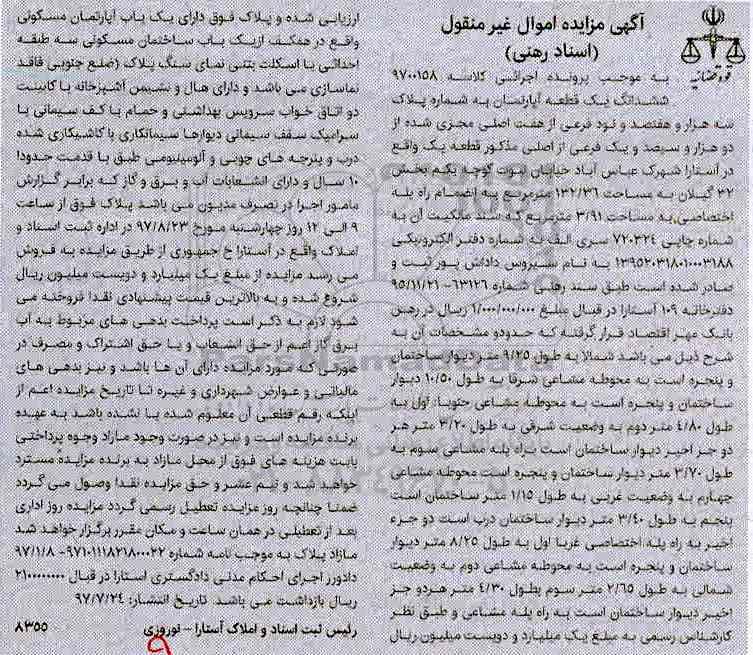 آگهی مزایده اموال غیر منقول
(اسناد رهنی)
قوه قضائیه
به موجب پرونده اجرائی کلاسه ۹۷۰۰۱۵۸
ششدانگ یک قطعه آپارتمان به شماره پلاک
سه هزار و هفتصد و نود فرعی از هفت اصلی مجزی شده از
دو هزار و سیصد و یک فرعی از اصلی مذکور قطعه یک واقع
در آستارا شهرک عباس آباد خیابان نبوت کوچه یکم بخش
۳۲ گیلان به مساحت ۱۳۲/۳۶ مترمربع به انضمام راه پله
اختصاصی به مساحت ۳/۹۱ مترمربع که سند مالکیت آن به
شماره چاپی ۷۲۰۳۲۴ سری الف به شماره دفتر الکترونیکی
۱۳۹۵۲۰۳۱۸۰۱۰۰۰۳۱۸۸ به نام سیروس داداش پور ثبت و
صادر شده است طبق سند رهنی شماره ۶۳۱۲۶- ۹۵/۱۱/۲۱
دفترخانه ۱۰۹ آستارا در قبال مبلغ ۱/۰۰۰/۰۰۰/۰۰۰ ریال در رهن
بانک مهر اقتصاد قرار گرفته که حدودو مشخصات آن به
شرح ذیل می باشد شمالا به طول ۹/۲۵ متر دیوار ساختمان
و پنجره است به محوطه مشاعی شرقا به طول ۱۰/۵۰ دیوار
ساختمان و پنجره است به محوطه مشاعی جنوبا: اول به
طول ۴/۸۰ متر دوم به وضعیت شرقی به طول ۳/۲۰ متر هر
دو جز اخیر دیوار ساختمان است براه پله مشاعی سوم به
طول ۳/۷۰ متر دیوار ساختمان و پنجره است محوطه مشاعی
چهارم به وضعیت غربی به طول ۱/۱۵ متر ساختمان است
پنجم به طول ۳/۴۰ متر دیوار ساختمان درب است دو جزء
اخیر به راه پله اختصاصی غربا اول به طول ۸/۲۵ متر دیوار
ساختمان و پنجره است به محوطه مشاعی دوم به وضعیت
شمالی به طول ۲/۶۵ متر سوم بطول ۴/۳۰ متر هردو جز
اخیر دیوار ساختمان است به راه پله مشاعی و طبق نظر
کارشناس رسمی به مبلغ یک میلیارد و دویست میلیون ریال
ارزیابی شده و پلاک فوق دارای یک باب آپارتمان مسکونی
واقع در همکف ازیک باب ساختمان مسکونی سه طبقه
احداثی با اسکلت بتنی نمای سنگ پلاک (ضلع جنوبی فاقد
نماسازی می باشد و دارای هال و نشیمن آشپزخانه با کابینت
دو اتاق خواب سرویس بهداشتی و حمام با کف سیمانی یا
سرامیک سقف سیمانی دیوارها سیمانکاری با کاشیکاری شده
درب و پنجره های چوبی و آلومینیومی طبق با قدمت حدودا
۱۰ سال و دارای انشعابات آب و برق و گاز که برابر گزارش
مامور اجرا در تصرف مدیون می باشد پلاک فوق از ساعت
۹ الی ۱۲ روز چهارشنبه مورخ ۹۷/۸/۲۳ در اداره ثبت اسناد و
املاک واقع در آستارا خ جمهوری از طریق مزایده به فروش
می رسد مزایده از مبلغ یک میلیارد و دویست میلیون ریال
شروع شده و به بالاترین قیمت پیشنهادی نقدا فروخته می
شود لازم به ذکر است پرداخت بدهی های مربوط به آب
برق گاز اعم از حق انشعاب و یا حق اشتراک و مصرف در
صورتی که مورد مزایده دارای آن ها باشد و نیز بدهی های
مالیاتی و عوارض شهرداری و غیره تا تاریخ مزایده اعم از
اینکه رقم قطعی آن معلوم شده یا نشده باشد به عهده
برنده مزایده است و نیز در صورت وجود مازاد وجوه پرداختی
بابت هزینه های فوق از محل مازاد به برنده مزایده مسترد
خواهد شد و نیم عشر و حق مزایده نقدا وصول می گردد
ضمنا چنانچه روز مزایده تعطیل رسمی گردد مزایده روز اداری
بعد از تعطیلی در همان ساعت و مکان مقرر برگزار خواهد شد
مازاد پلاک به موجب نامه شماره ۹۷۱۰۱۱۱۸۲۱۸۰۰۰۳۲- ۹۷/۱/۸
دادورز اجرای احکام مدنی دادگستری آستارا در قبال ۲۱۰۰۰۰۰۰۰
ریال بازداشت می باشد. تاریخ انتشار: ۹۷/۷/۲۴
رئیس ثبت اسناد و املاک آستارا – نوروزی
۸۳۵۵